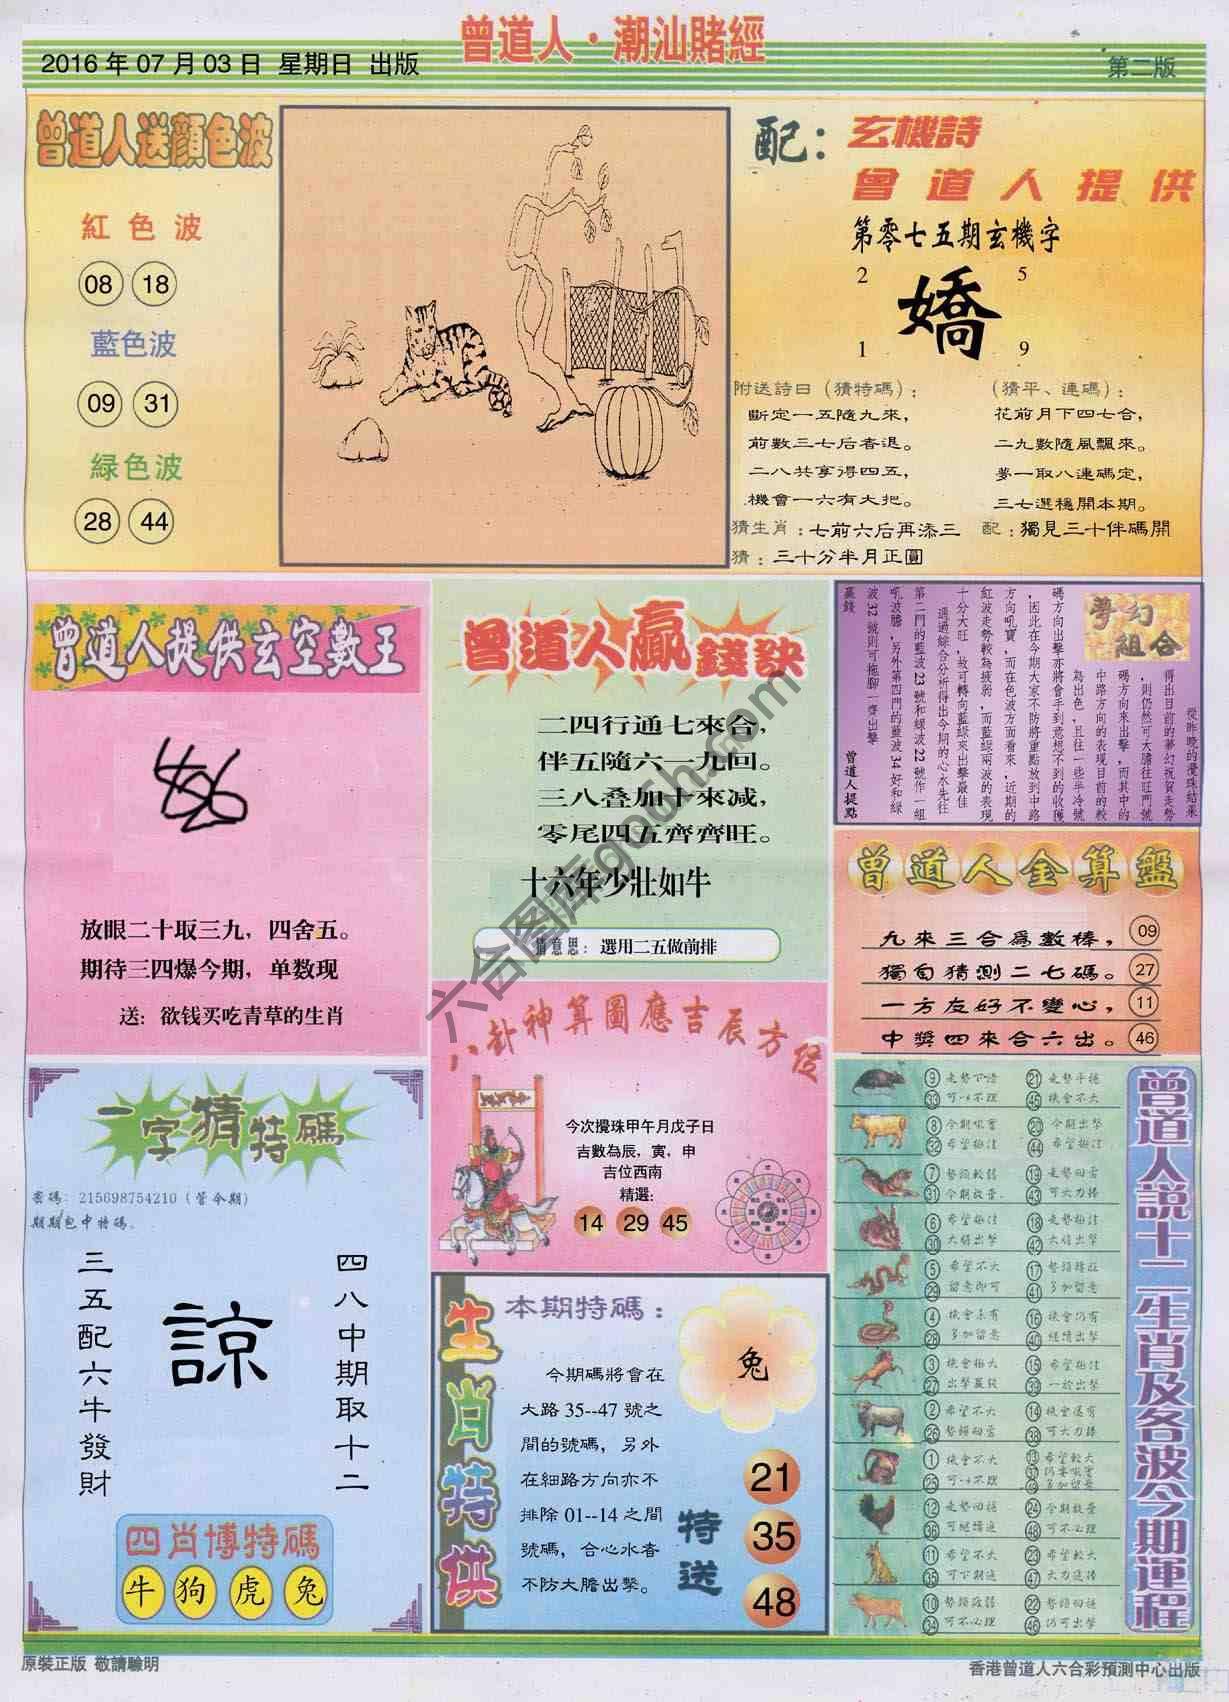 曾道人·潮汕賭經
2016 年 07 月 03 日  星期日  出版
第二版
曾道人送顏色波
紅色波
08 18
藍色波
09 31
綠色波
28 44
配：玄機詩
曾道人提供
第零七五期玄機字
2 5
嬌
1 9
附送詩曰（猜特碼）：
斷定一五隨九來，
前數三七后香退。
二八共享得四五，
機會一六有大把。
（猜平、連碼）：
花前月下四七合，
二九數隨風飄來。
夢一取八連碼定，
三七選穩開本期。
猜生肖：七前六后再添三
配：獨見三十伴碼開
猜：三十分半月正圓
曾道人提供玄空數王
放眼二十取三九，四舍五。
期待三四爆今期，单数现
送：欲钱买吃青草的生肖
曾道人贏錢訣
二四行通七來合，
伴五隨六一九回。
三八叠加十來减，
零尾四五齊齊旺。
十六年少壯如牛
猜意思：選用二五做前排
夢幻組合
從昨晚的攪珠結果
得出目前的夢幻祝賀走勢
，則仍然可大膽往旺門號
碼方向來出擊，而其中的
中路方向的表現目前的較
為出色，且往一些半冷號
碼方向出擊亦將會手到意想不到的收獲
，因此在今期大家不防將重點放到中路
方向吼寶，而在色波方面看來，近期的
紅波走勢較為疲弱，而藍綠兩波的表現
十分大旺，故可轉向藍綠來出擊最佳
通過綜合分析得出今期的心水先往
第二門的藍波23號和緑波22號作一組
吼波膽，另外第四門的藍波34好和綠
波32號則可拖腳一齊出擊
贏錢
曾道人提點
曾道人金算盤
九來三合為數棒， 09
獨自猜測二七碼。 27
一方友好不變心， 11
中獎四來合六出。 46
八卦神算圖應吉辰方位
今次攪珠甲午月戊子日
吉數為辰，寅，申
吉位西南
精選:
14 29 45
一字猜特碼
密碼：215698754210（管今期）
期期包中特碼。
三五配六牛發財
諒
四八中期取十二
四肖博特碼
牛 狗 虎 兔
生肖特供
本期特碼：
兔
今期碼將會在
大路 35--47 號之
間的號碼，另外
在細路方向亦不
排除 01--14 之間
號碼，合心水者
不防大膽出擊。
特送
21
35
48
曾道人説十二生肖及各波今期運程
9 走勢下滑 21 走勢平穩
33 可以不理 45 機會不大
8 今期吼實 20 今期出擊
32 希望極注 44 希望極注
7 勢頭較弱 19 勢頭回雲
31 今期放棄 43 可大力捧
6 希望極注 18 走勢極注
30 大膽出擊 42 大膽出擊
5 希望不大 17 勢頭轉旺
29 留意即可 41 多加留意
4 機會未有 16 機會仍有
28 多加留意 40 繼續出擊
3 機會極大 15 希望極注
27 出擊贏錢 39 一於出擊
2 希望不大 14 機會還有
26 勢頭回雲 38 可大力捧
1 機會不大 13 希望較大
25 可以不理 37
12 走勢回穩 24 今期放棄
36 可繼續追 48 可不必理
11 希望不大 23 希望較大
35 可下期追 47 大力追捧
10 勢頭疲弱 22 勢頭回穩
34 可不必理 46 仍可出擊
原裝正版 敬請驗明
香港曾道人六合彩預測中心出版
六合图库gooh.com